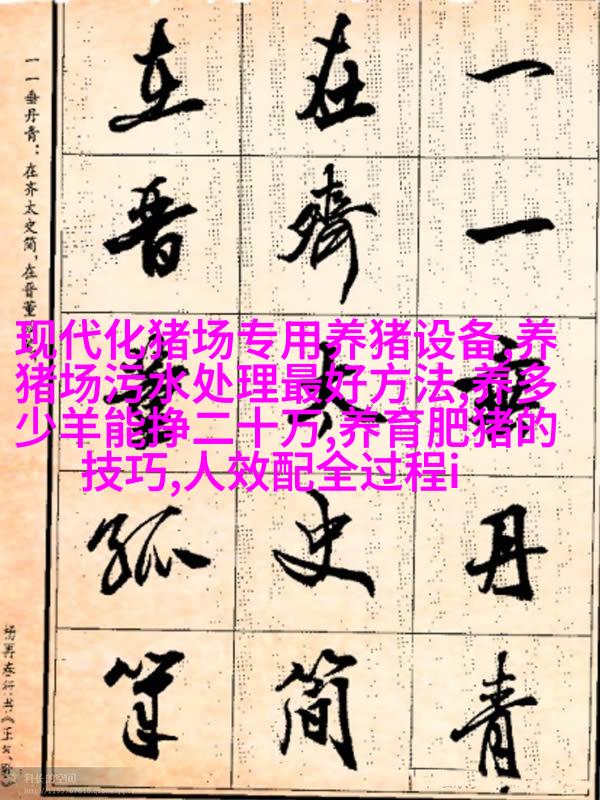 现代化猪场专用养猪设备,养
猪场污水处理最好方法,养多
少羊能挣二十万,养育肥猪的
技巧,人效配全过程i
一一垂丹青
在齊太史简
在晋董狐笔
一一垂丹青：在齐太史简，在晋董
杨再春行书《正气
科长的空间